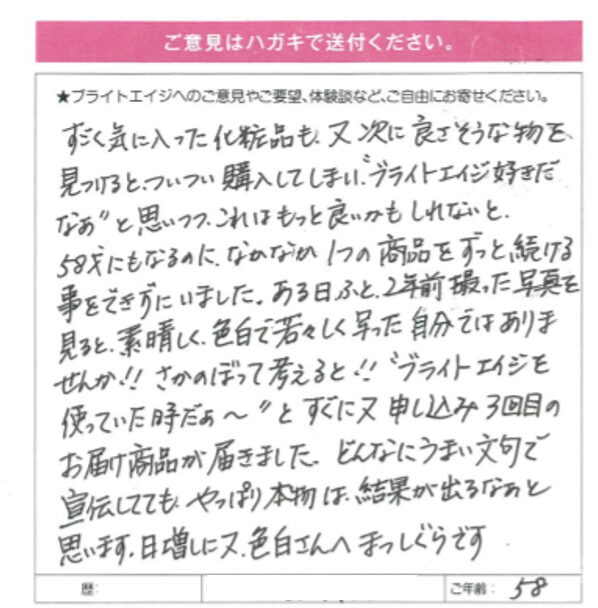 ご意見はハガキで送付ください。
★ブライトエイジへのご意見やご要望、体験談など、ご自由にお寄せください。
すごく気に入った化粧品も、又次に良さそうな物を
見つけると、ついつい購入してしまい、“ブライトエイジ好きだ
なぁ”と思いつつ、これはもっと良いかもしれないと、
58才にもなるのに、なかなか1つの商品をずっと続ける
事をできずにいました。ある日ふと、2年前撮った写真を
見ると、素晴しく、色白で若々しく写った自分ではありま
せんか!!さかのぼって考えると!!“ブライトエイジを
使っていた時だぁ〜”とすぐに又申し込み3回目の
お届け商品が届きました。どんなにうまい文句で
宣伝してても、やっぱり本物は、結果が出るなぁと
思います。日増しに又、色白さんへまっしぐらです
歴:
ご年齢: 58